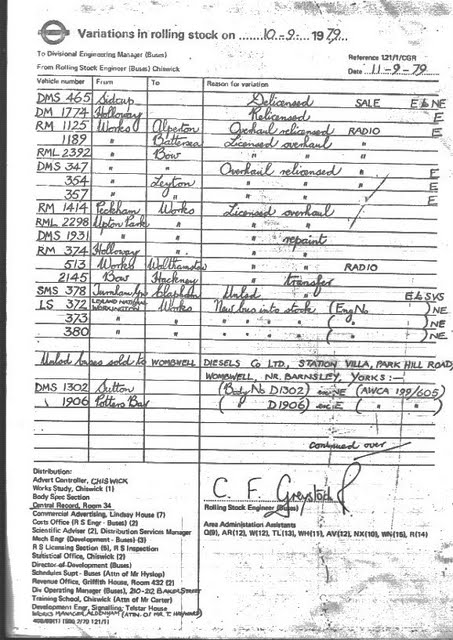 Variations in rolling stock on 10-9- 1979
To Divisional Engineering Manager (Buses)
From Rolling Stock Engineer (Buses) Chiswick
Reference 121/1/CGR
Date 11-9-79
Vehicle number From To Reason for variation
DMS 465 Sidcup Delicensed SALE E & NE
DM 1774 Holloway Relicensed E
RM 1125 Works Alperton Overhaul relicensed RADIO E
1189 " Battersea Licensed overhaul "
RML 2392 " Bow " "
DMS 347 " " Overhaul relicensed " E
354 " Leyton " " E
357 " " " " E
RM 1414 Peckham Works Licensed overhaul
RML 2298 Upton Park " " "
DMS 1931 " " " repaint
RM 374 Holloway " " "
513 Works Walthamstow " " RADIO
2145 Bow Hackney " transfer
SMS 378 Turnham Gn Clapham Unlsd " E & SVS
LS 372 LEYLAND NATIONAL WORKINGTON Works New bus into stock (Eng No ) NE
373 " " " ( " ) NE
380 " " " ( " ) NE
Unlsd buses sold to WOMBWELL DIESELS Co LTD., STATION VILLA, PARK HILL ROAD,
WOMBWELL, NR. BARNSLEY, YORKS :—
DMS 1302 Sutton (Body No D1302) NE (AWCA 199/605)
1906 Potters Bar ( " D1906) E ( " " )
continued over
Distribution:
Advert Controller, CHISWICK
Works Study, Chiswick (1)
Body Spec Section
Central Record, Room 34
Commercial Advertising, Lindsay House (7)
Costs Office (R S Engr - Buses) (2)
Scientific Adviser (2), Distribution Services Manager
Mech Engr (Development - Buses) (3)
R S Licensing Section (5), R S Inspection
Statistical Office, Chiswick (2)
Director of Development (Buses)
Schedules Supt - Buses (Attn of Mr Hyslop)
Revenue Office, Griffith House, Room 432 (2)
Div Operating Manager (Buses), 210-212 BAKER STREET
Training School, Chiswick (Attn of Mr Carter)
Development Engr, Signalling, Telstar House
WORKS MANAGER, ALDENHAM (ATTN. OF MR. T. HAYWARD)
C. F. Greystock
Rolling Stock Engineer (Buses)
Area Administration Assistants
Q(9), AR(12), W(12), TL(13), WH(11), AV(12), NX(10), WN(15), R(14)